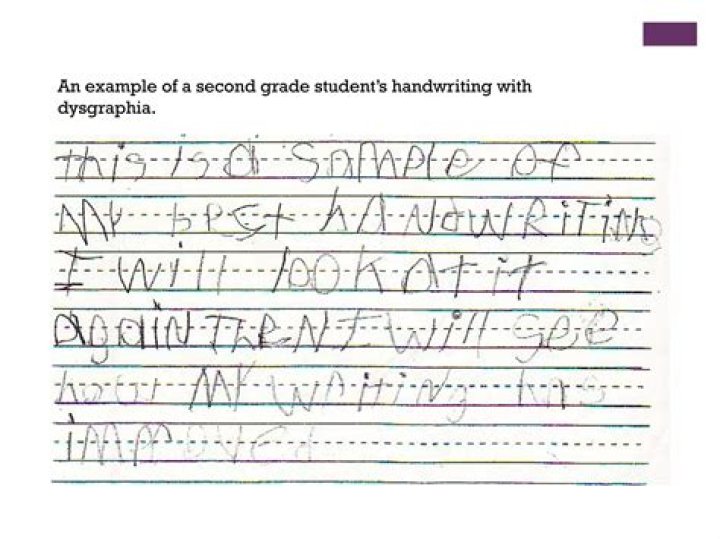 An example of a second grade student's handwriting with
dysgraphia.
this is a SaMPle of
My best hANdwRiTiNg
I will look at it
agaiN TheN I will see
how My WRitiNg has
iMpRoved